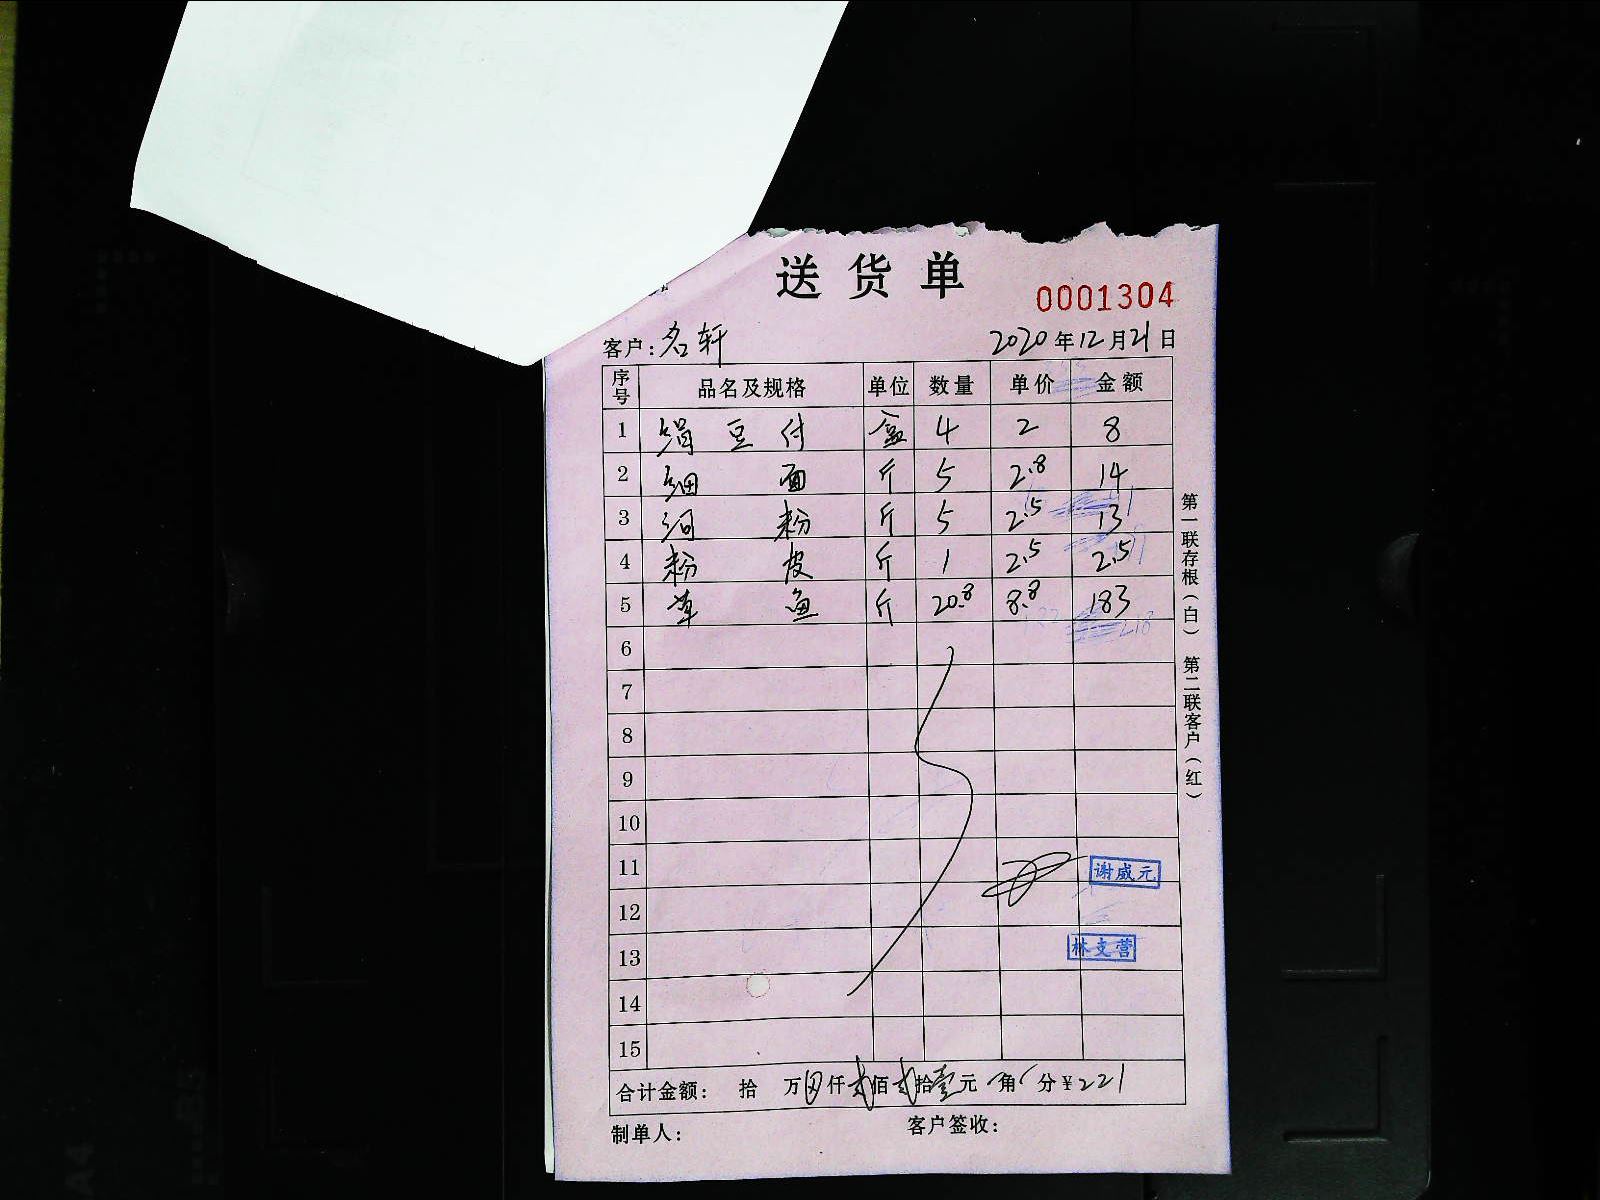 送货单
0001304
客户:名轩 2020年12月21日
序号 品名及规格 单位 数量 单价 金额
1 绢豆付 盒 4 2 8
2 细面 斤 5 2.8 14
3 河粉 斤 5 2.5 13
4 粉皮 斤 1 2.5 2.5
5 草鱼 斤 20.8 8.8 183
6
7
8
9
10
11 谢威元
12
13 林支营
14
15
合计金额: 拾 万 仟贰佰贰拾壹元 角 分¥221
制单人: 客户签收:
第一联存根(白) 第二联客户(红)
A4